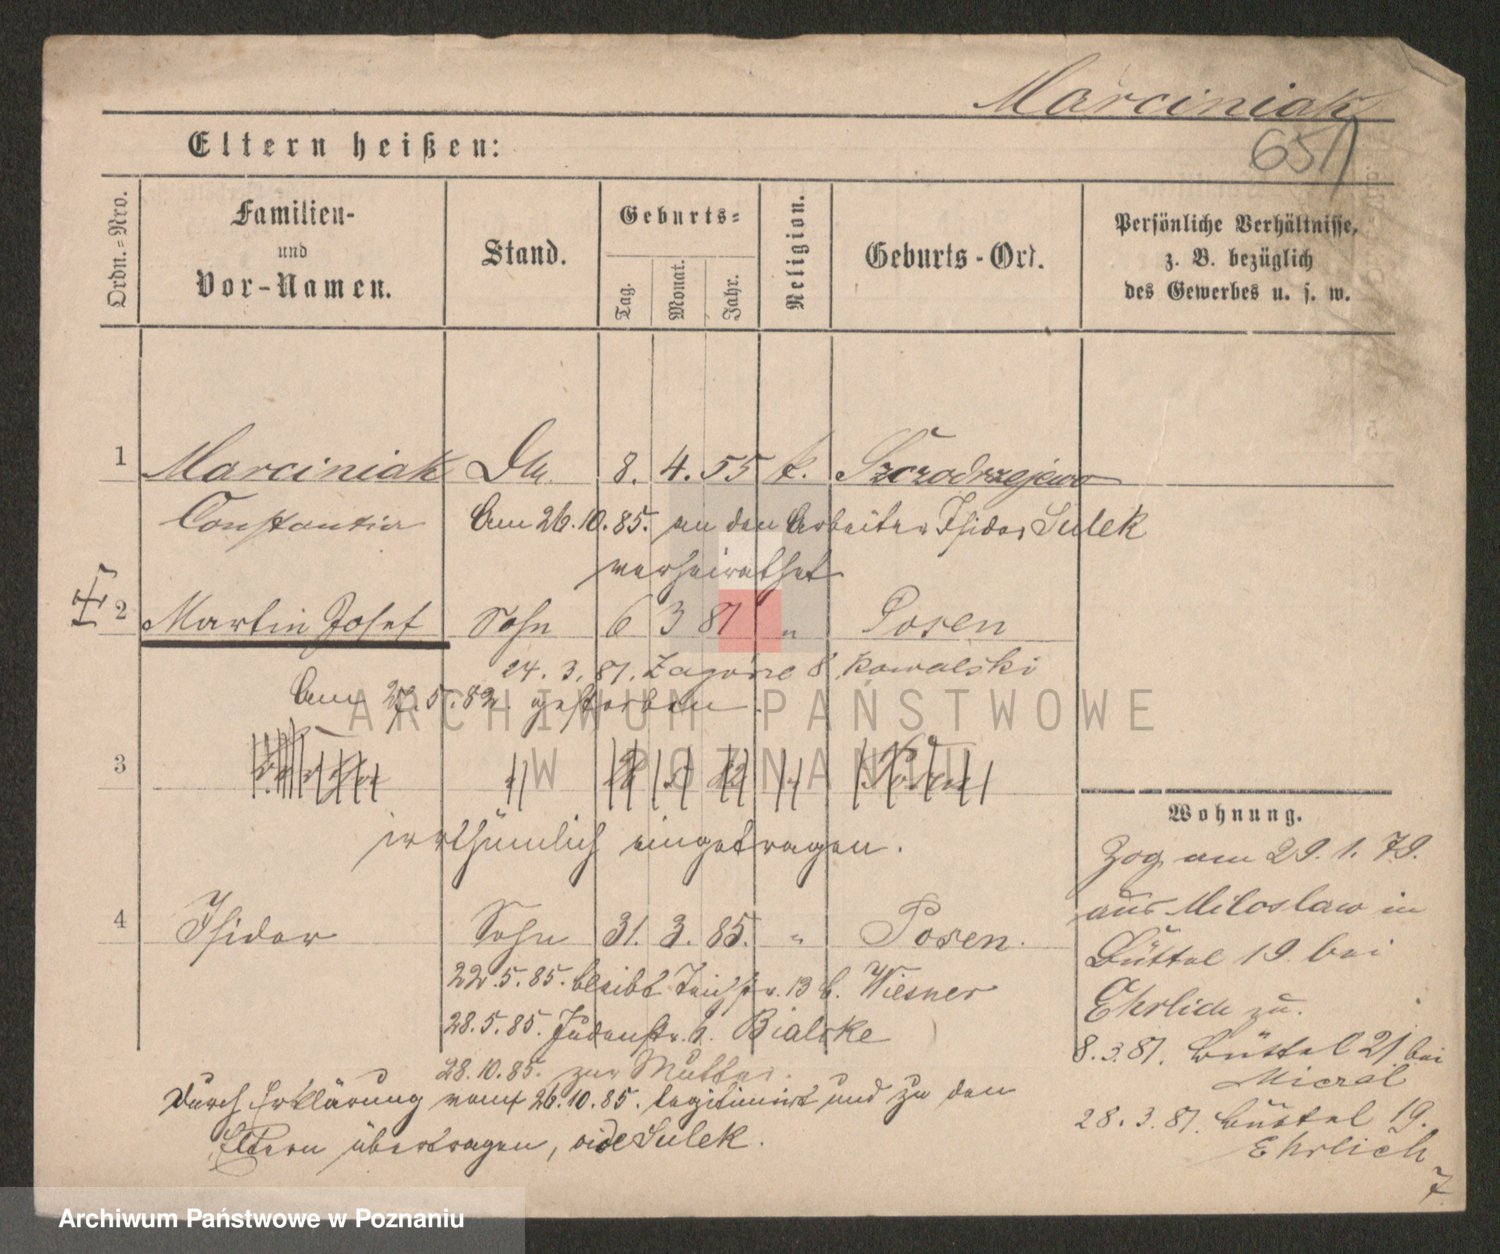 Marciniak
651
Eltern heißen:
Ordn.=Nro.
Familien-
und
Vor-Namen.
Stand.
Geburts=
Tag.
Monat.
Jahr.
Religion.
Geburts-Ort.
Persönliche Verhältnisse,
z. B. bezüglich
des Gewerbes u. s. w.
1 Marciniak 8. 4. 55 k. Szczodrzejewo
Constantia Am 26.10.85. an den Arbeiter Isidor Sulek
verheirathet
2 Martin Josef Sohn 6 3 81 " Posen
24. 3. 81. Zagórze 8 Kowalski
Am 27.5.82. gestorben
3
irrthümlich eingetragen.
4 Isidor Sohn 31. 3. 85. " Posen.
22.5.85. bleibt Teichstr. 13 b. Wiesner
28.5.85. Judenstr. Bialske
28.10.85. zur Mutter.
Durch Erklärung vom 26.10.85. legitimirt und zu den
Eltern übertragen, vide Sulek.
Wohnung.
Zog am 29. 1. 79.
aus Miloslaw in
Büttel 19. bei
Ehrlich zu.
8.3.81. Büttel 21 bei
Micral
28.3.81. Büttel 19.
Ehrlich
7
ARCHIWUM PAŃSTWOWE
W POZNANIU
Archiwum Państwowe w Poznaniu